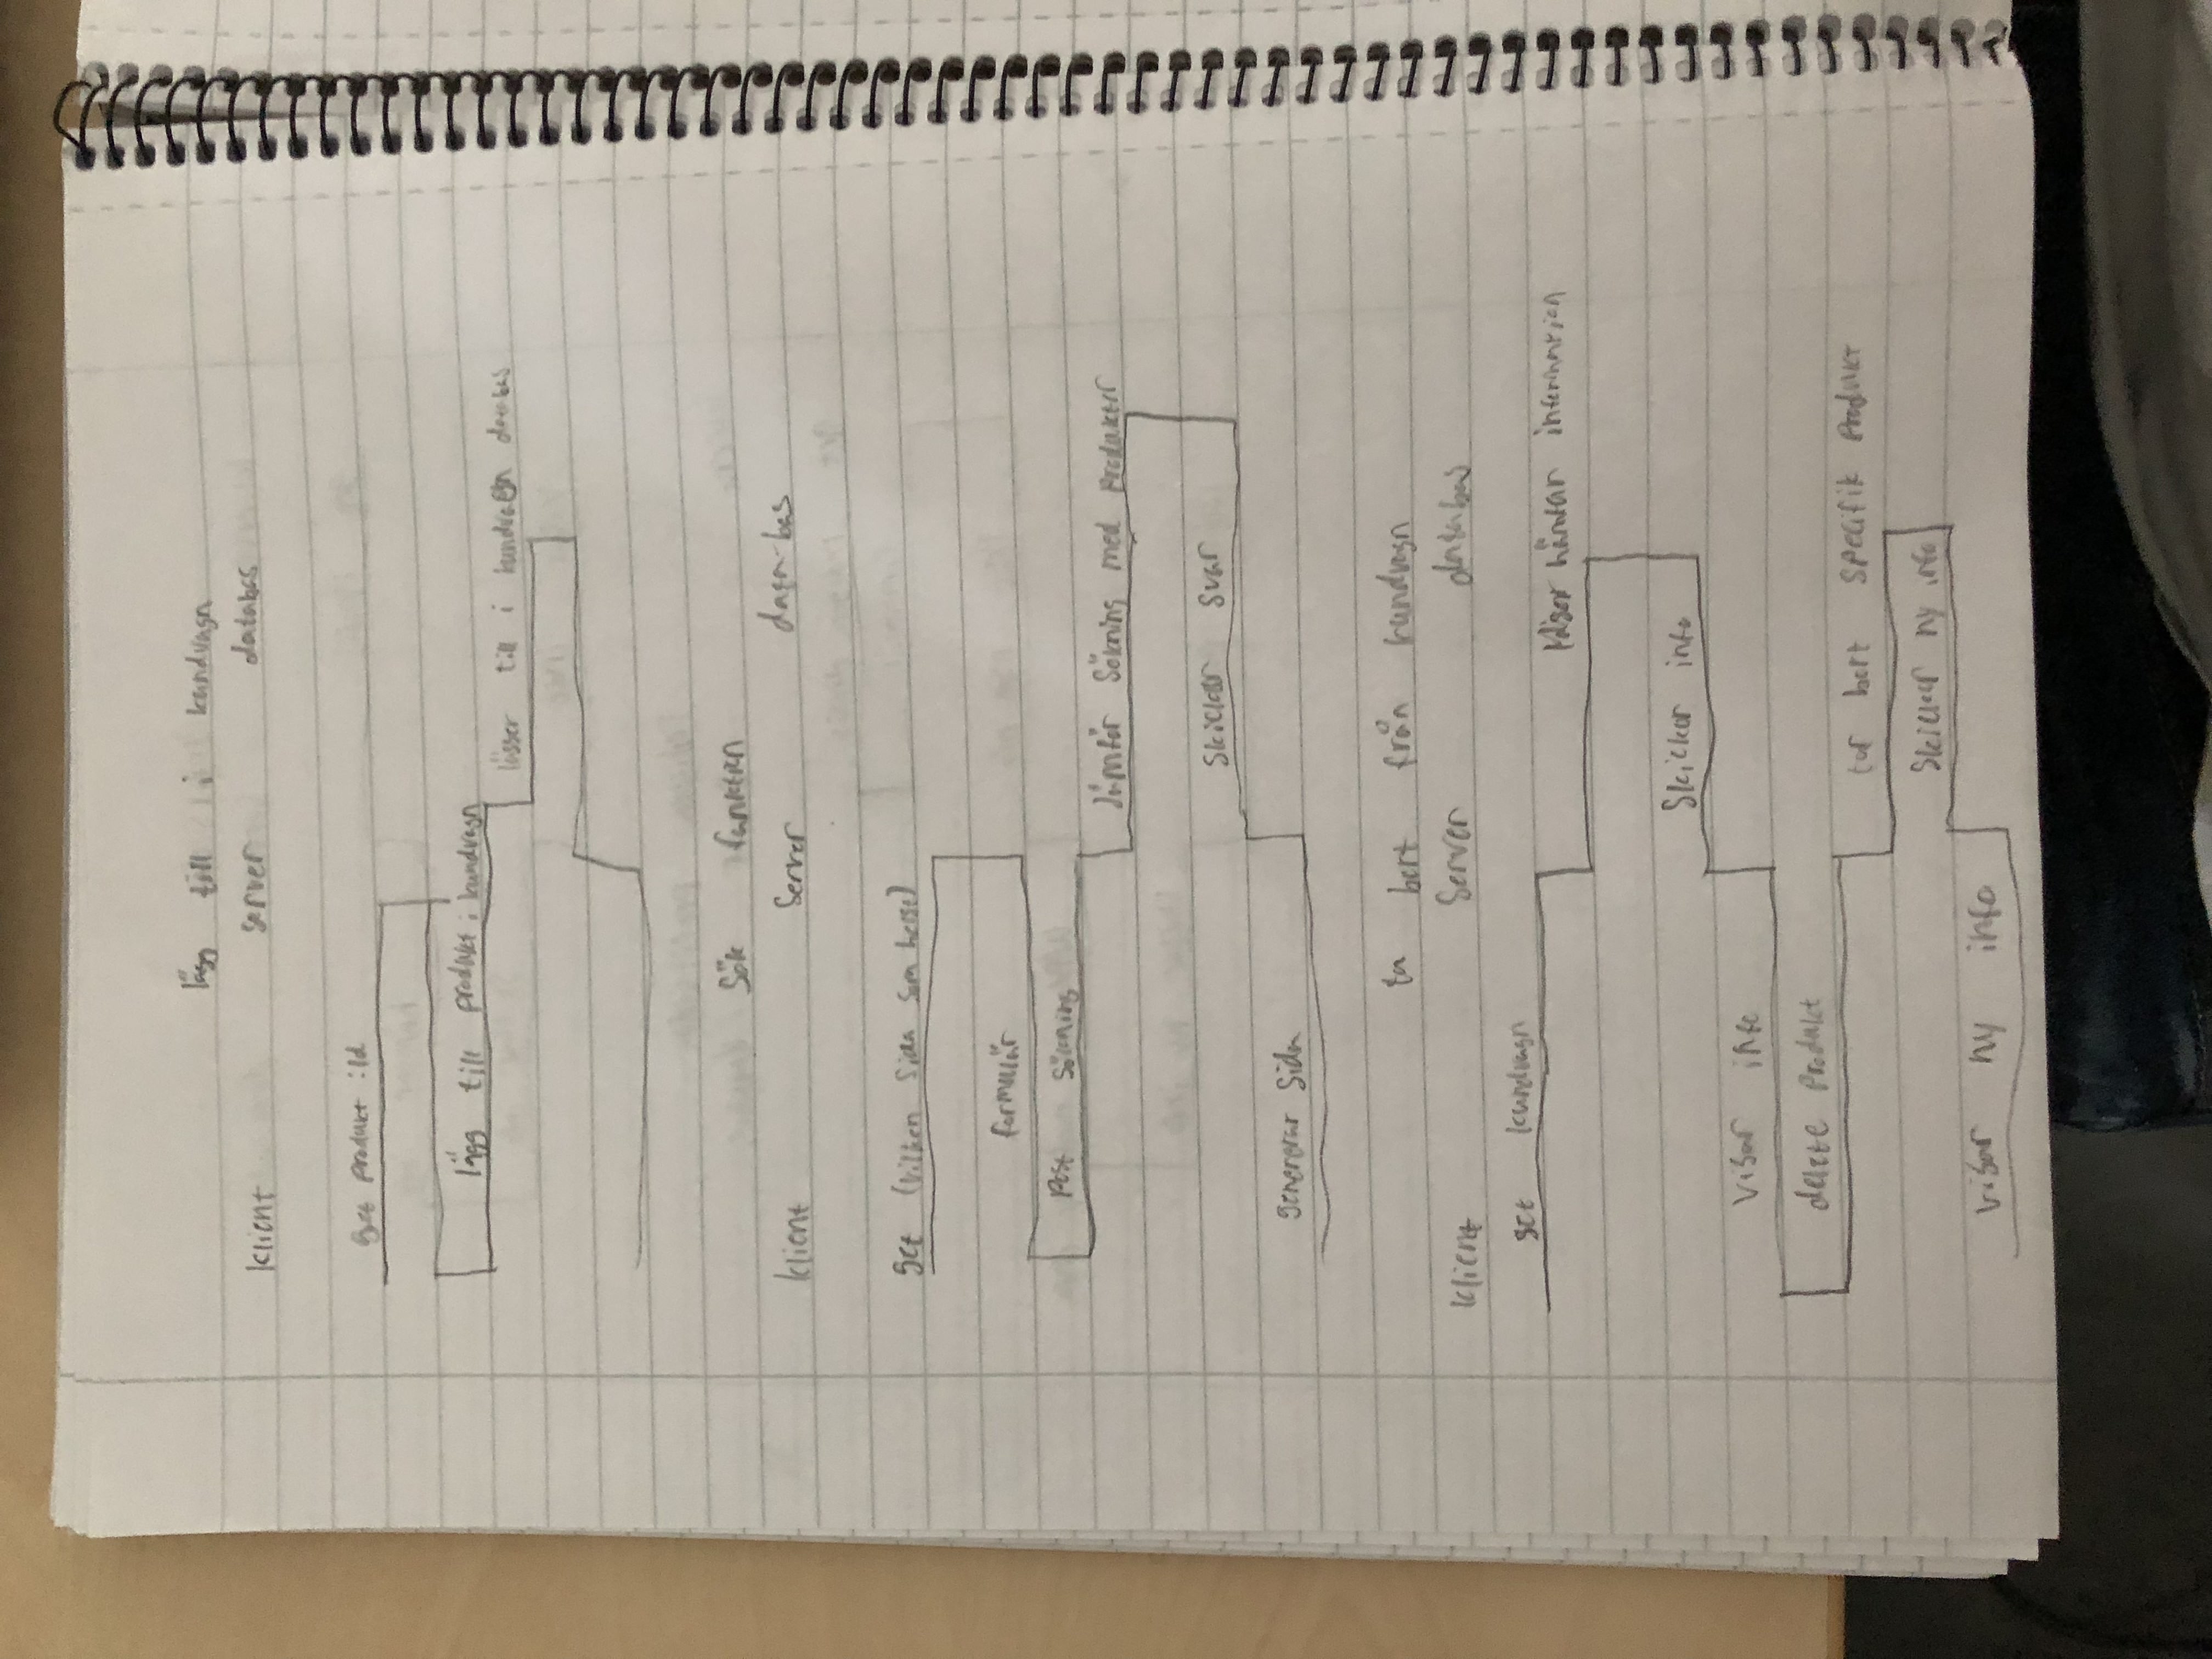 lägg till i kundvagn
klient server databas
get produkt :Id
lägg till produkt i kundvagn
lägger till i kundvagn databas
Sök funktion
klient Server data-bas
get (vilken sida som helst)
formulär
post sökning
Jämför sökning med produkter
Skickar svar
genererar sida
ta bort från kundvagn
klient Server databas
get kundvagn
hämtar information
Skickar info
visar info
delete produkt
tar bort specifik produkt
Skickar ny info
visar ny info